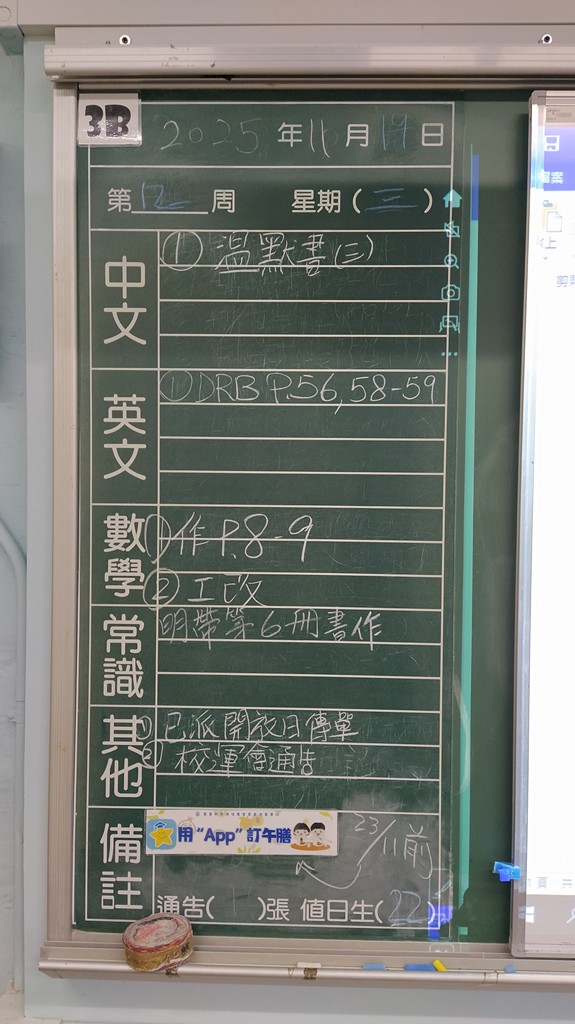 3B
2025 年 11 月 19 日
第 12 周 星期 ( 三 )
中文
① 溫默書(三)
英文
① DRB P.56, 58-59
數學
① 作 P. 8-9
② 工改
常識
明帶第6冊書作
其他
① 已派開放日傳單
② 校運會通告
備註
用 “App” 訂午膳
23/11前
通告( 1 )張 值日生( 22 )